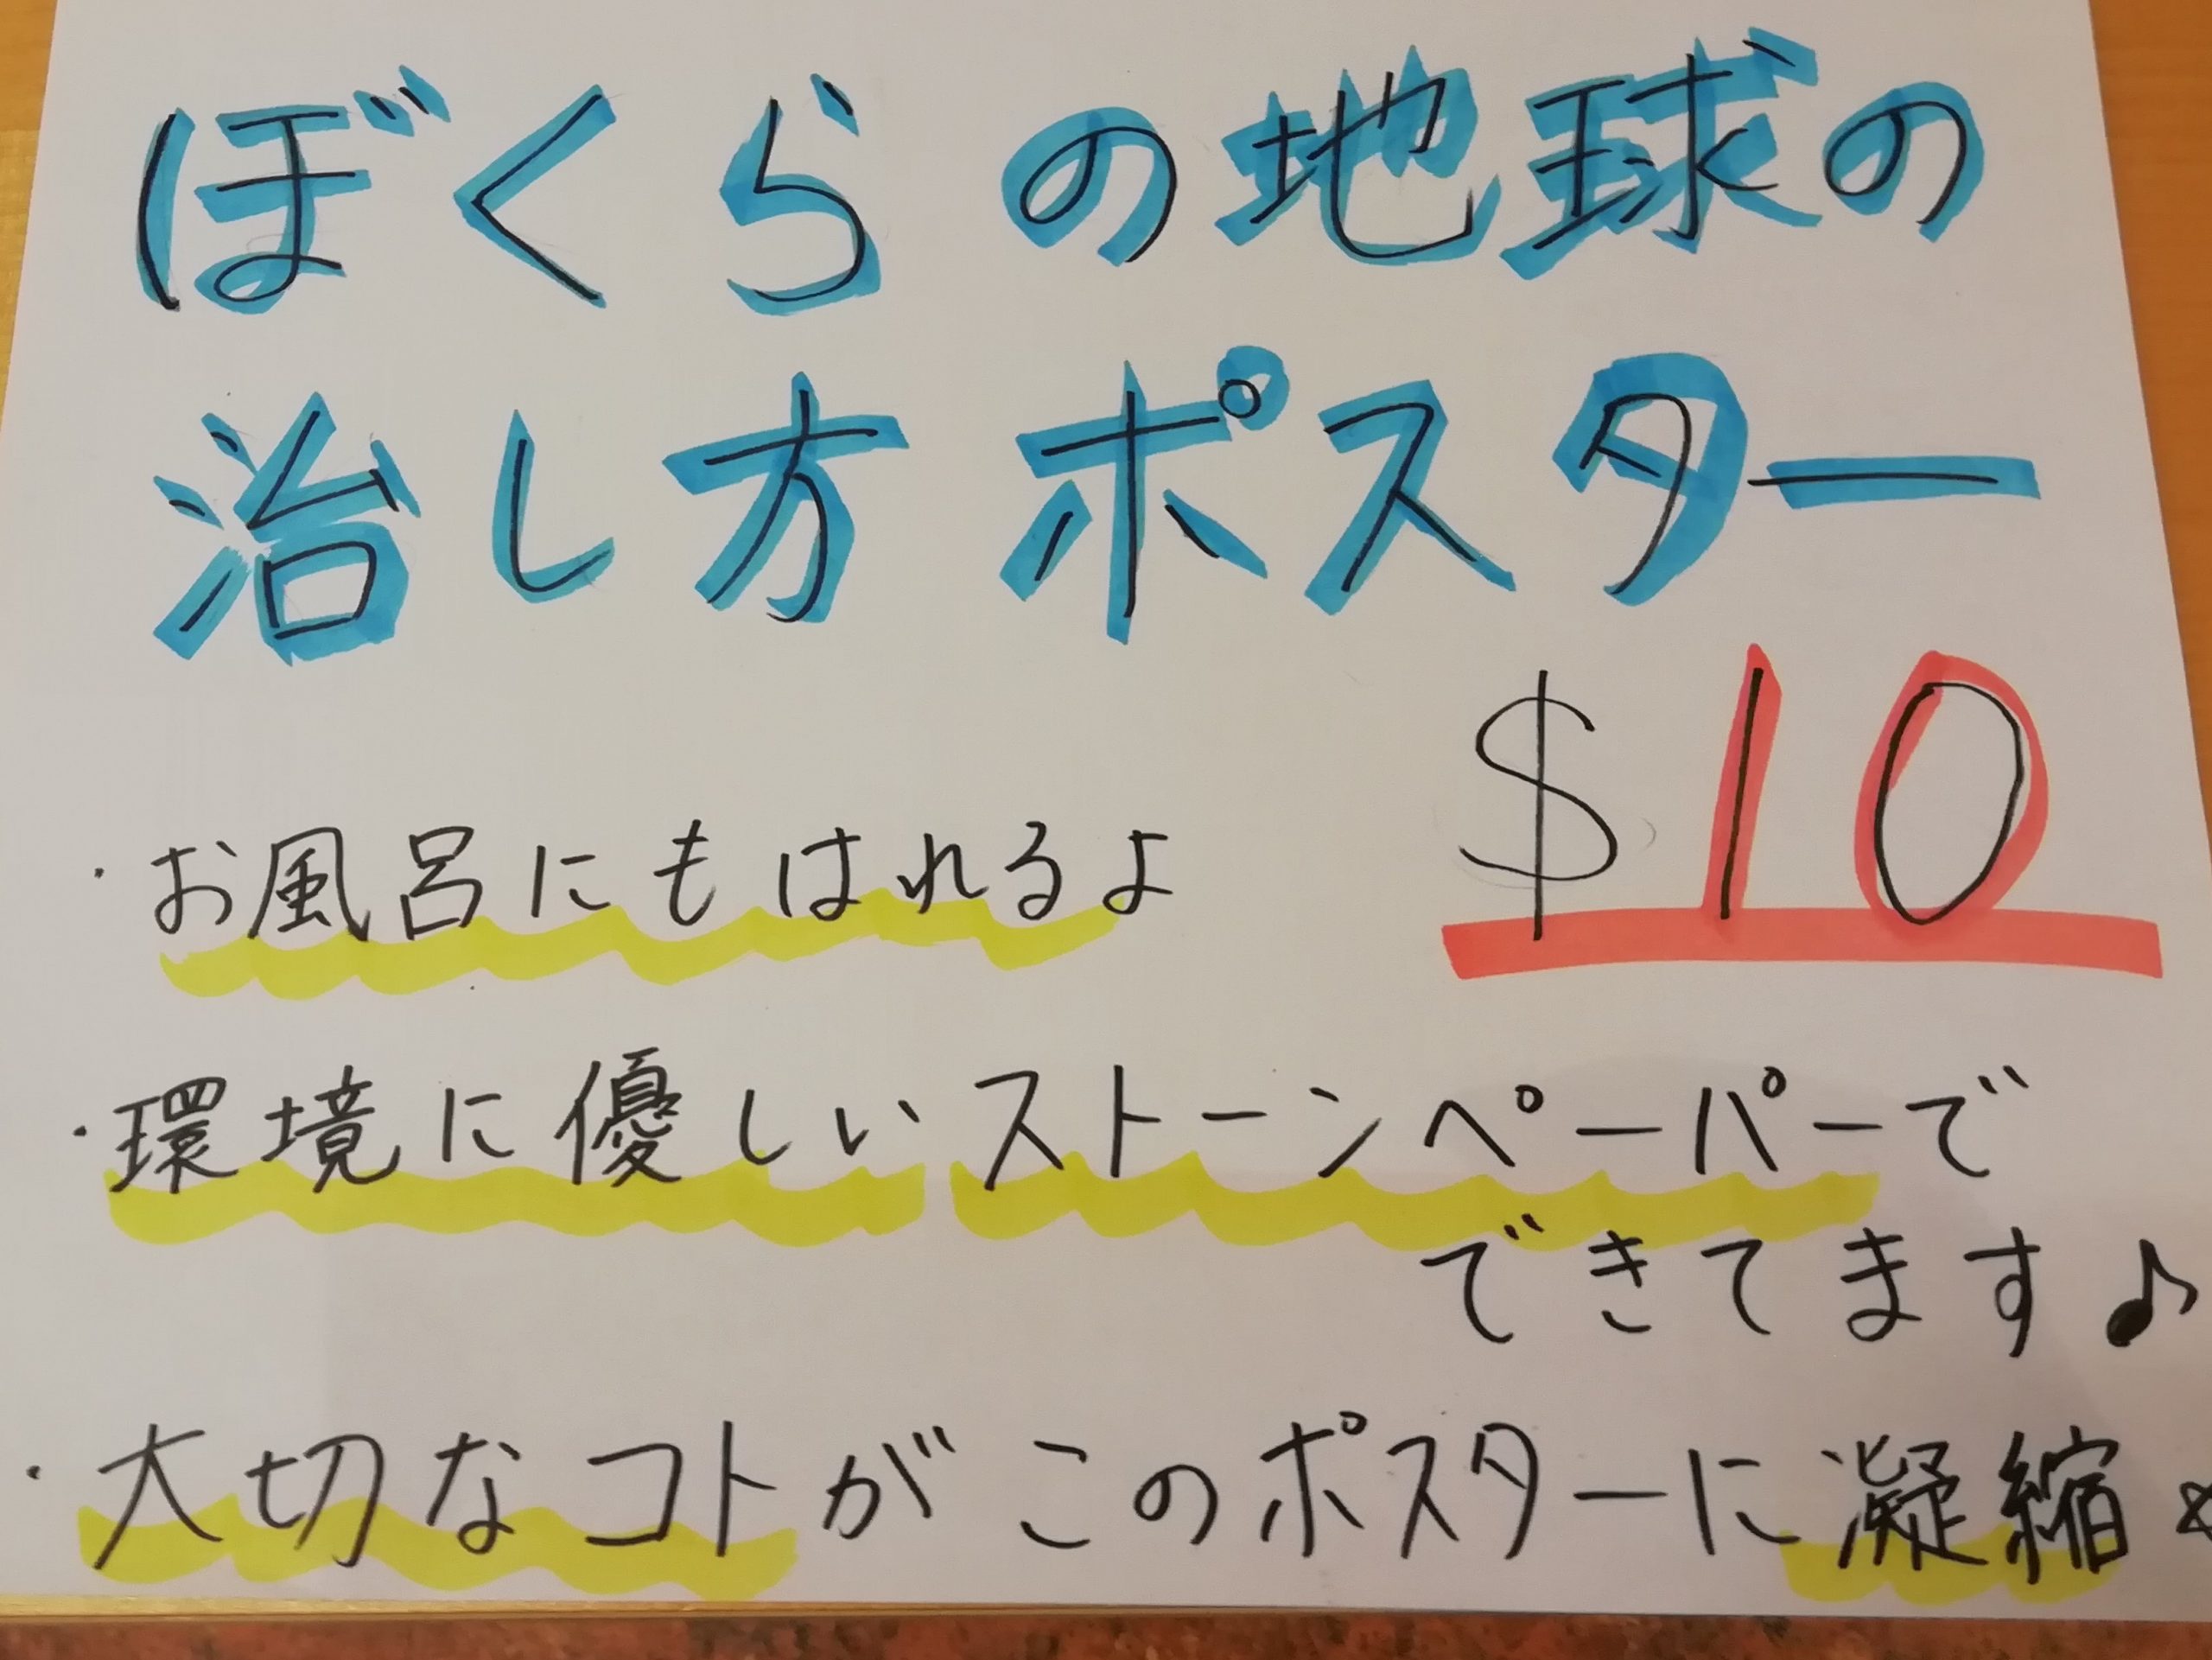 ぼくらの地球の
治し方ポスター
$10
・お風呂にもはれるよ
・環境に優しいストーンペーパーで
できてます♪
・大切なコトがこのポスターに凝縮